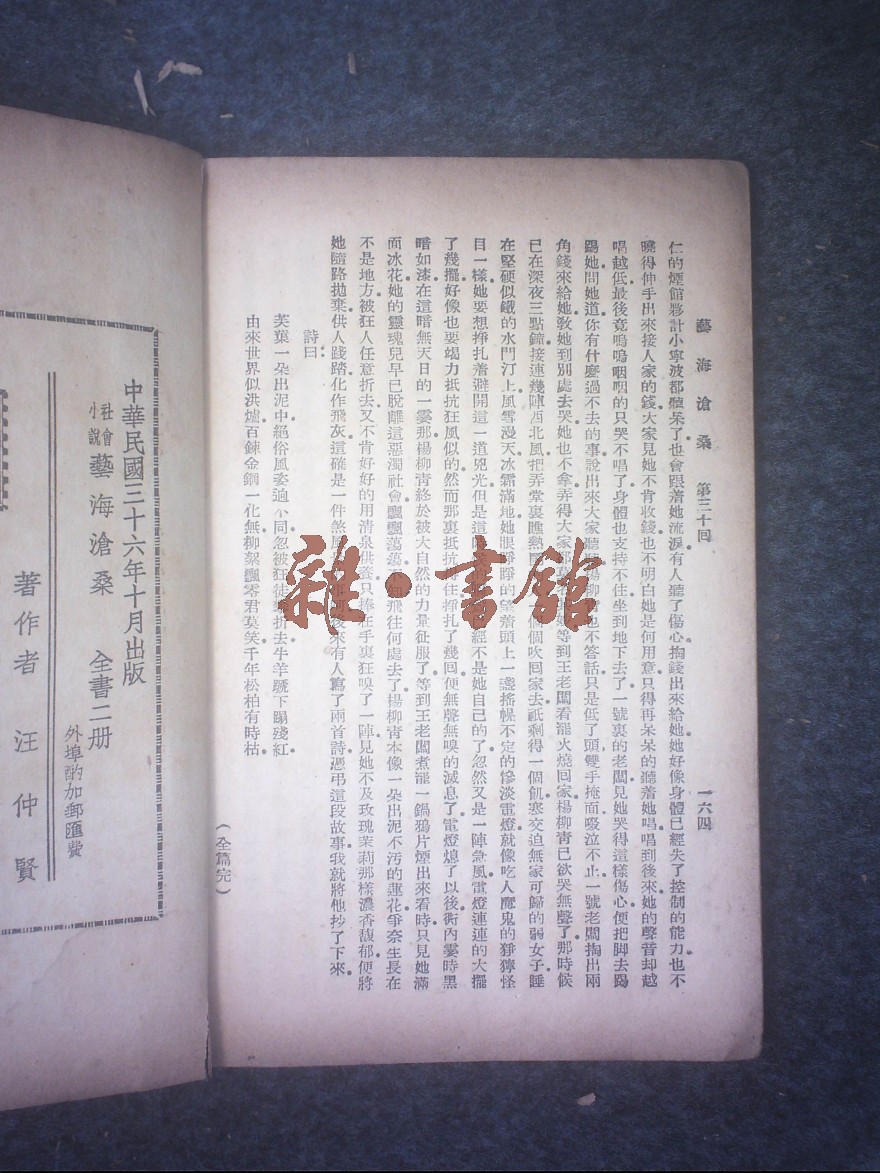 藝海滄桑 第三十回 一六四
仁的煙館夥計小寧波都聽呆了也會跟着她流淚有人聽了傷心掏錢出來給她她好像身體已經失了控制的能力也不
曉得伸手出來接人家的錢大家見她不肯收錢也不明白她是何用意只得再呆呆的聽着她唱唱到後來她的聲音却越
唱越低最後竟嗚嗚咽咽的只哭不唱了身體也支持不住坐到地下去了一號裏的老闆見她哭得這樣傷心便把脚去踢
踢她問她道你有什麼過不去的事說出來大家聽 楊柳青也不答話只是低了頭雙手掩面啜泣不止一號老闆掏出兩
角錢來給她教她到別處去哭她也不拿弄得大家 等到王老闆看罷火燒回家楊柳青已欲哭無聲了那時候
已在深夜三點鐘接連幾陣西北風把弄堂裏瞧熱 個個吹回家去祇剩得一個飢寒交迫無家可歸的弱女子睡
在堅硬似鐵的水門汀上風雪漫天冰霜滿地她眼睜睜的望着頭上一盞搖幌不定的慘淡電燈就像吃人魔鬼的猙獰怪
目一樣她要想掙扎着避開這一道兇光但是這 經不是她自己的了忽然又是一陣急風電燈連連的大擺
了幾擺好像也要竭力抵抗狂風似的然而那裏抵抗得住掙扎了幾回便無聲無嗅的滅息了電燈熄了以後衖內霎時黑
暗如漆在這暗無天日的一霎那楊柳青終於被大自然的力量征服了等到王老闆煮罷一鍋鴉片煙出來看時只見她滿
面冰花她的靈魂兒早已脫離這惡濁社會飄飄蕩蕩 知飛往何處去了楊柳青本像一朵出泥不污的蓮花爭奈生長在
不是地方被狂人任意折去又不肯好好的用清泉供養只捧在手裏狂嗅了一陣見她不及玫瑰茉莉那樣濃香馥郁便將
她隨路拋棄供人踐踏化作飛灰這確是一件煞 後來有人寫了兩首詩憑弔這段故事我就將他抄了下來
詩曰
芙蕖一朵出泥中絕俗風姿逈不同忽被狂徒 折去牛羊蹏下蹋殘紅
由來世界似洪爐百鍊金鋼一化無柳絮飄零君莫笑千年松柏有時枯
（全篇完）
雜·書館
中華民國三十六年十月出版
社會小說 藝海滄桑 全書二册
外埠酌加郵匯費
著作者 汪仲賢